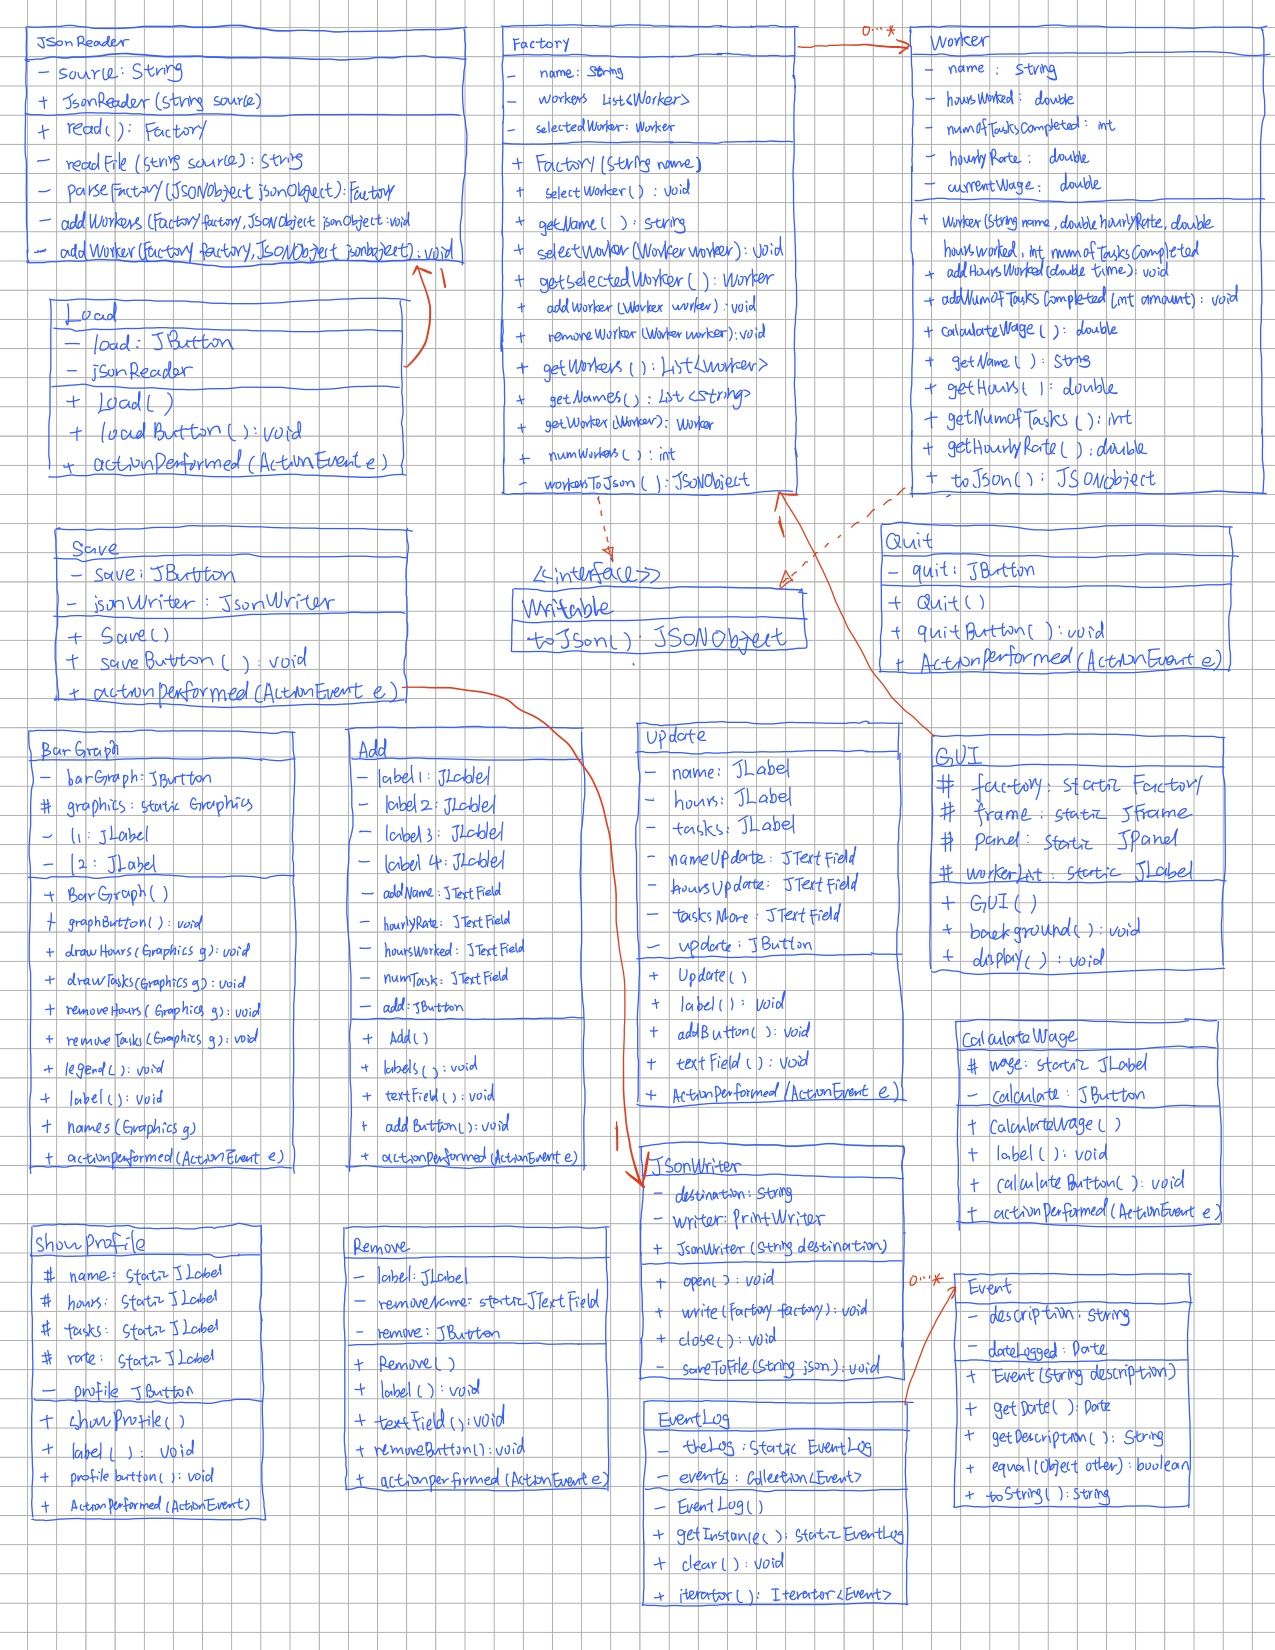 JsonReader
- source: String
+ JsonReader(String source)
+ read(): Factory
- readFile(String source): String
- parseFactory(JSONObject jsonObject): Factory
- addWorkers(Factory factory, JSONObject jsonObject: void
- addWorker(Factory factory, JSONObject jsonboject): void
1
Load
- load: JButton
- jsonReader
+ Load()
+ loadButton(): void
+ actionPerformed(ActionEvent e)
Factory
- name: String
- workers List<Worker>
- selectedWorker: Worker
+ Factory(String name)
+ selectWorker(): void
+ getName(): String
+ selectWorker(Worker worker): void
+ getSelectedWorker(): Worker
+ addWorker(Worker worker): void
+ removeWorker(Worker worker): void
+ getWorkers(): List<worker>
+ getNames(): List<String>
+ getWorker(Worker): Worker
+ numWorkers(): int
- workersToJson(): JSONObject
0...*
Worker
- name: String
- hoursWorked: double
- numofTasksCompleted: int
- hourlyRate: double
- currentWage: double
+ Worker(String name, double hourlyRate, double
hours worked, int numofTasksCompleted
+ addHoursWorked(double time): void
+ addNumofTasksCompleted(int amount): void
+ calculateWage(): double
+ getName(): String
+ getHours(): double
+ getNumofTasks(): int
+ getHourlyRate(): double
+ toJson(): JSONobject
Save
- save: JButton
- jsonWriter: JsonWriter
+ Save()
+ saveButton(): void
+ actionPerformed(ActionEvent e)
<<interface>>
Writable
toJson(): JSONObject
1
Quit
- quit: JButton
+ Quit()
+ quitButton(): void
+ ActionPerformed(ActionEvent e)
BarGraph
- barGraph: JButton
# graphics: static Graphics
- l1: JLabel
- l2: JLabel
+ BarGraph()
+ graphButton(): void
+ drawHours(Graphics g): void
+ drawTasks(Graphics g): void
+ removeHours(Graphics g): void
+ removeTasks(Graphics g): void
+ legend(): void
+ label(): void
+ names(Graphics g)
+ actionPerformed(ActionEvent e)
Add
- label1: JLablel
- label2: JLablel
- label3: JLablel
- label4: JLablel
- addName: JTextField
- hourlyRate: JTextField
- hoursWorked: JTextField
- numTask: JTextField
- add: JButton
+ Add()
+ labels(): void
+ textField(): void
+ addButton(): void
+ actionPerformed(ActionEvent e)
Update
- name: JLabel
- hours: JLabel
- tasks: JLabel
- nameUpdate: JTextField
- hoursUpdate: JTextField
- tasksMore: JTextField
- update: JButton
+ Update()
+ label(): void
+ addButton(): void
+ textField(): void
+ ActionPerformed(ActionEvent e)
GUI
# factory: static Factory
# frame: static Jframe
# panel: static JPanel
# workerList: static JLabel
+ GUI()
+ background(): void
+ display(): void
CalculateWage
# wage: static JLabel
- calculate: JButton
+ CalculateWage()
+ label(): void
+ calculateButton(): void
+ actionPerformed(ActionEvent e)
1
JSonWriter
- destination: String
- writer: PrintWriter
+ JsonWriter(String destination)
+ open(): void
+ write(Factory factory): void
+ close(): void
- saveToFile(String json): void
ShowProfile
# name: Static JLabel
# hours: Static JLabel
# tasks: Static JLabel
# rate: Static JLabel
- profile JButton
+ showProfile()
+ label(): void
+ profile button(): void
+ ActionPerformed(ActionEvent)
Remove
- label: JLabel
- removeName: static JTextField
- remove: JButton
+ Remove()
+ label(): void
+ textField(): void
+ removeButton(): void
+ actionperformed(ActionEvent e)
EventLog
- theLog: Static EventLog
- events: Collection<Event>
- EventLog()
+ getInstance(): Static EventLog
+ clear(): void
+ iterator(): Iterator<Event>
0...*
Event
- description: String
- dateLogged: Date
+ Event(String description)
+ getDate(): Date
+ getDescription(): String
+ equal(Object other): boolean
+ toString(): String